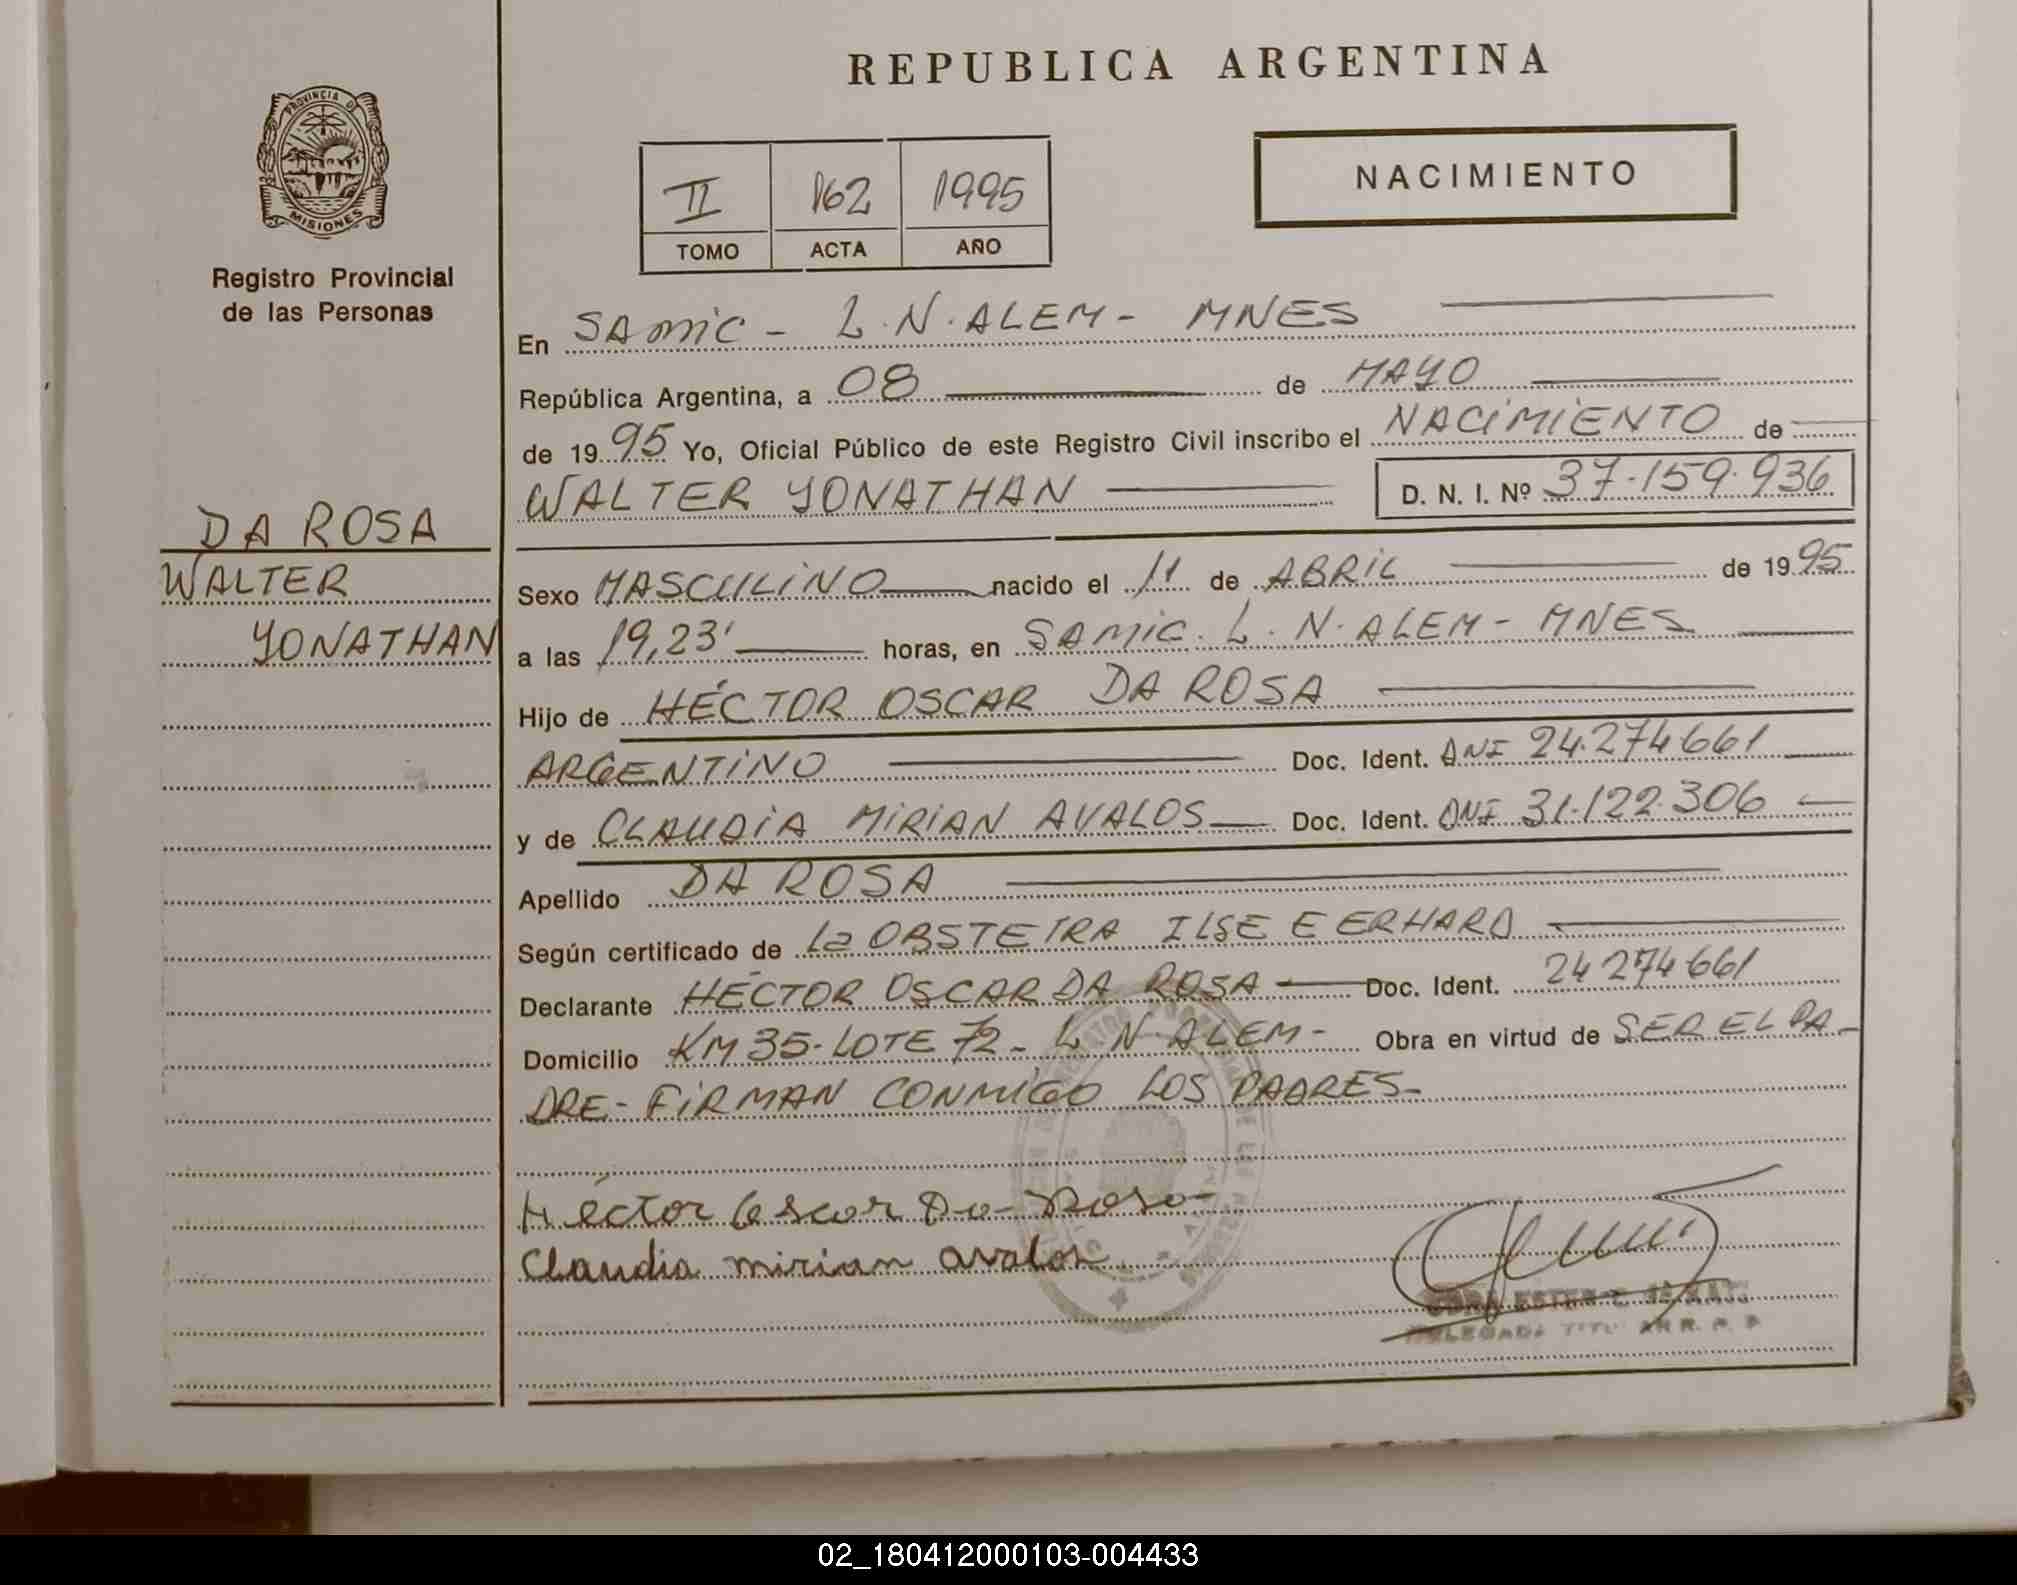 REPUBLICA ARGENTINA
PROVINCIA DE
MISIONES
Registro Provincial
de las Personas
II 162 1995
TOMO ACTA AÑO
NACIMIENTO
DA ROSA
WALTER
YONATHAN
En SAMIC - L.N. ALEM - MNES
República Argentina, a 08 de MAYO
de 1995 Yo, Oficial Público de este Registro Civil inscribo el NACIMIENTO de
WALTER YONATHAN D. N. I. Nº 37.159.936
Sexo MASCULINO nacido el 11 de ABRIL de 1995
a las 19,23' horas, en SAMIC. L. N. ALEM - MNES
Hijo de HÉCTOR OSCAR DA ROSA
ARGENTINO Doc. Ident. DNI 24.274661
y de CLAUDIA MIRIAN AVALOS Doc. Ident. DNI 31.122.306
Apellido DA ROSA
Según certificado de La OBSTETRA ILSE E ERHARD
Declarante HÉCTOR OSCAR DA ROSA Doc. Ident. 24274661
Domicilio KM 35 - LOTE 72 - L N ALEM - Obra en virtud de SER EL PA-
DRE - FIRMAN CONMIGO LOS PADRES -
Héctor Oscar Da Rosa
Claudia mirian avalos
02_180412000103-004433